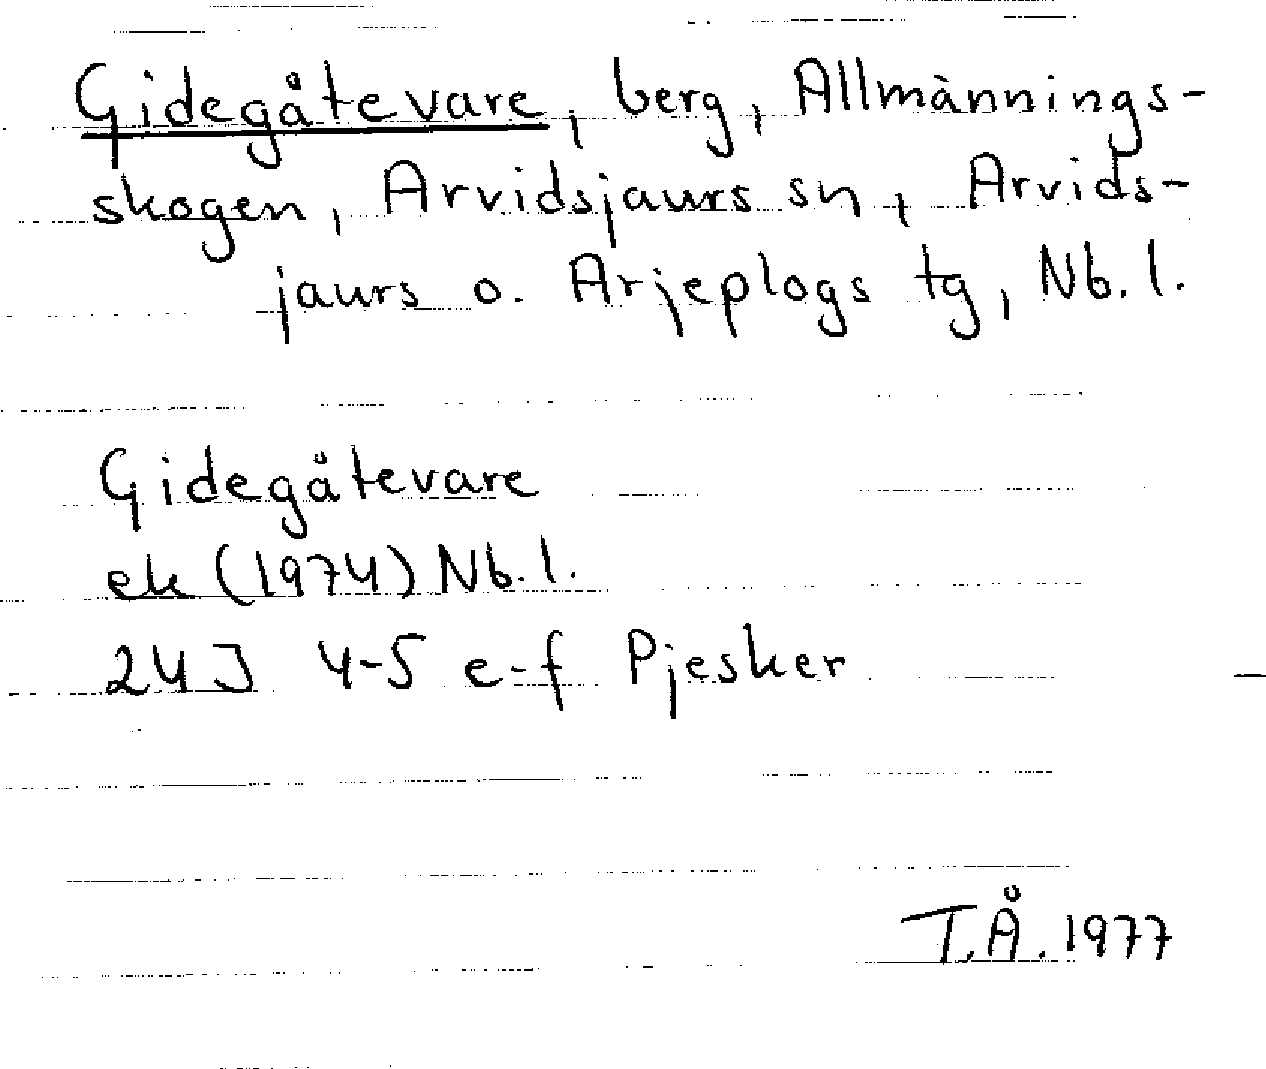 Gidegåtevare, berg, Allmännings-
skogen, Arvidsjaurs sn, Arvids-
jaurs o. Arjeplogs tg, Nb. l.
Gidegåtevare
ek (1974) Nb. l.
24J 4-5 e-f Pjesker
T.Å. 1977